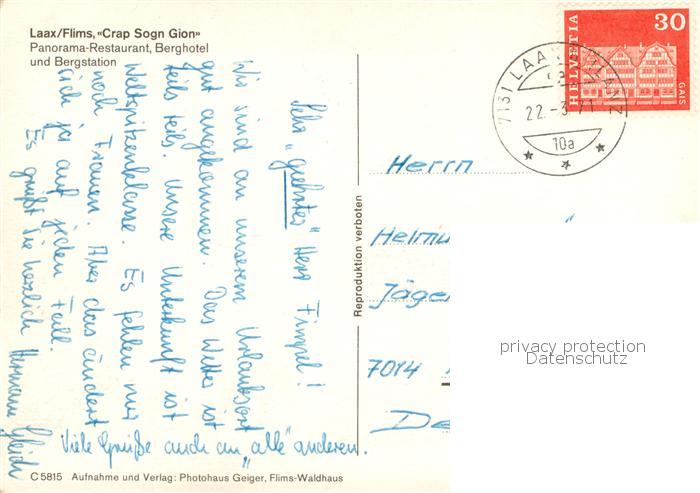 Laax/Flims, «Crap Sogn Gion»
Panorama-Restaurant, Berghotel
und Bergstation
Sehr "geehrter" Herr Fimpel!
Wir sind an unserem Urlaubsort
gut angekommen. Das Wetter ist
teils teils. Unsere Unterkunft ist
Weltspitzenklasse. Es fehlen nur
noch Frauen. Aber das ändert
sich ja auf jeden Fall.
Es grüßt Sie herzlich Hermann
Viele Grüße auch an "alle" anderen.
C 5815 Aufnahme und Verlag: Photohaus Geiger, Flims-Waldhaus
Reproduktion verboten
HELVETIA
30
GAIS
7131 LAAX
22.-3.71
10a
Herrn
Helmu
Jäger
7014
De
privacy protection
Datenschutz